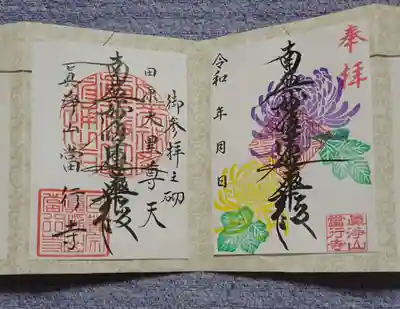 奉拝
南無妙法蓮華経
令和 年 月 日
眞浄山
當行寺
御参拝之砌
田原大黒尊天
南無妙法蓮華経
眞浄山當行寺